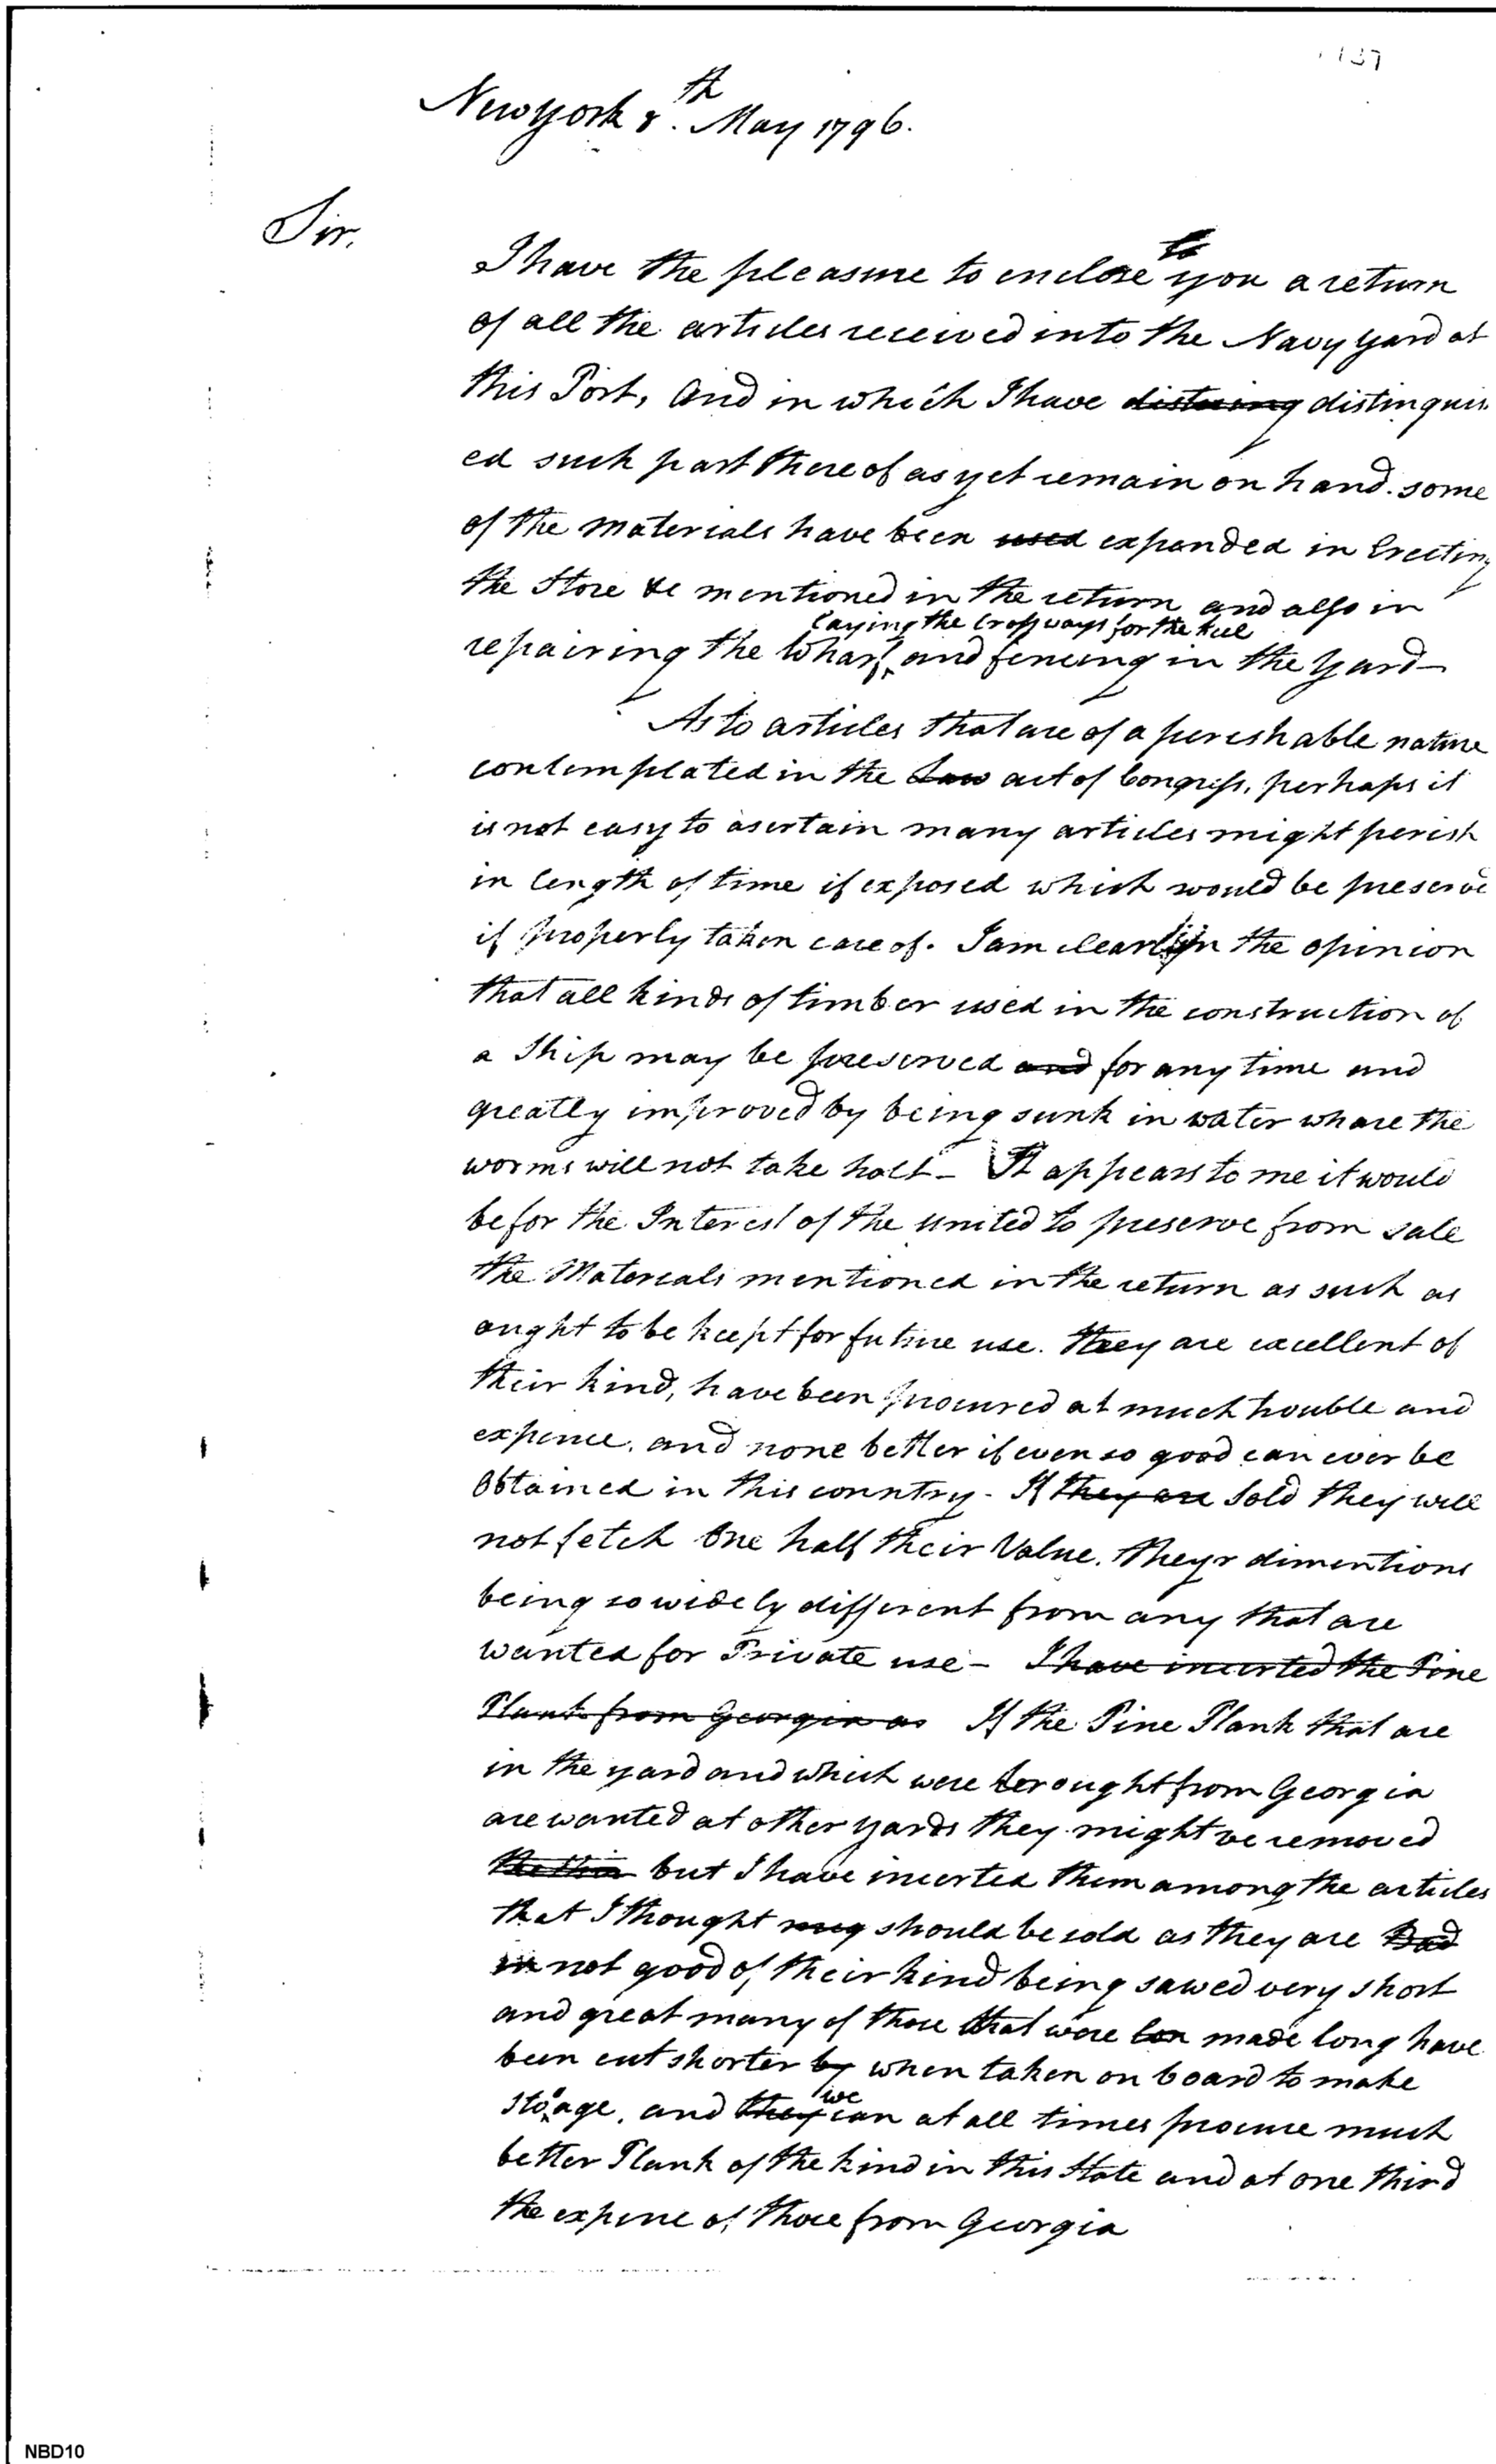 137
New york 8th. May 1796.
Sir.
I have the pleasure to enclose to you a return
of all the articles received into the Navy yard at
this Port, and in which I have distuing distinguis
ed such part thereof as yet remain on hand. some
of the materials have been used expended in Erecting
the Store &c mentioned in the return and also in
laying the Crossways for the keel
repairing the Wharf, and fencing in the yard—
As to articles that are of a perishable nature
contemplated in the Law act of Congress, perhaps it
is not easy to asertain many articles might perish
in length of time if exposed which would be preserve
if properly taken care of. I am clearly in the opinion
that all kinds of timber used in the construction of
a Ship may be preserved and for any time and
greatly improved by being sunk in water whare the
worms will not take holt— It appears to me it would
be for the Interest of the united to preserve from sale
the Materials mentioned in the return as such as
ought to be keept for future use. they are excellent of
their kind, have been procured at much trouble and
expence, and none better if even so good can ever be
Obtained in this country— If they are Sold they will
not fetch One half their Value. theyr dimentions
being so widely different from any that are
wanted for Private use— I have incerted the Pine
Plank from Georgia as If the Pine Plank that are
in the yard and which were brought from Georgia
are wanted at other yards they might be removed
but I have incerted them among the articles
that I thought mig should be sold as they are Bad
in not good of their kind being sawed very short
and great many of those that were lon made long have
been cut shorter by when taken on board to make
stoage, and they we can at all times procure much
better Plank of the kind in this State and at one third
the expence of those from Georgia
NBD10